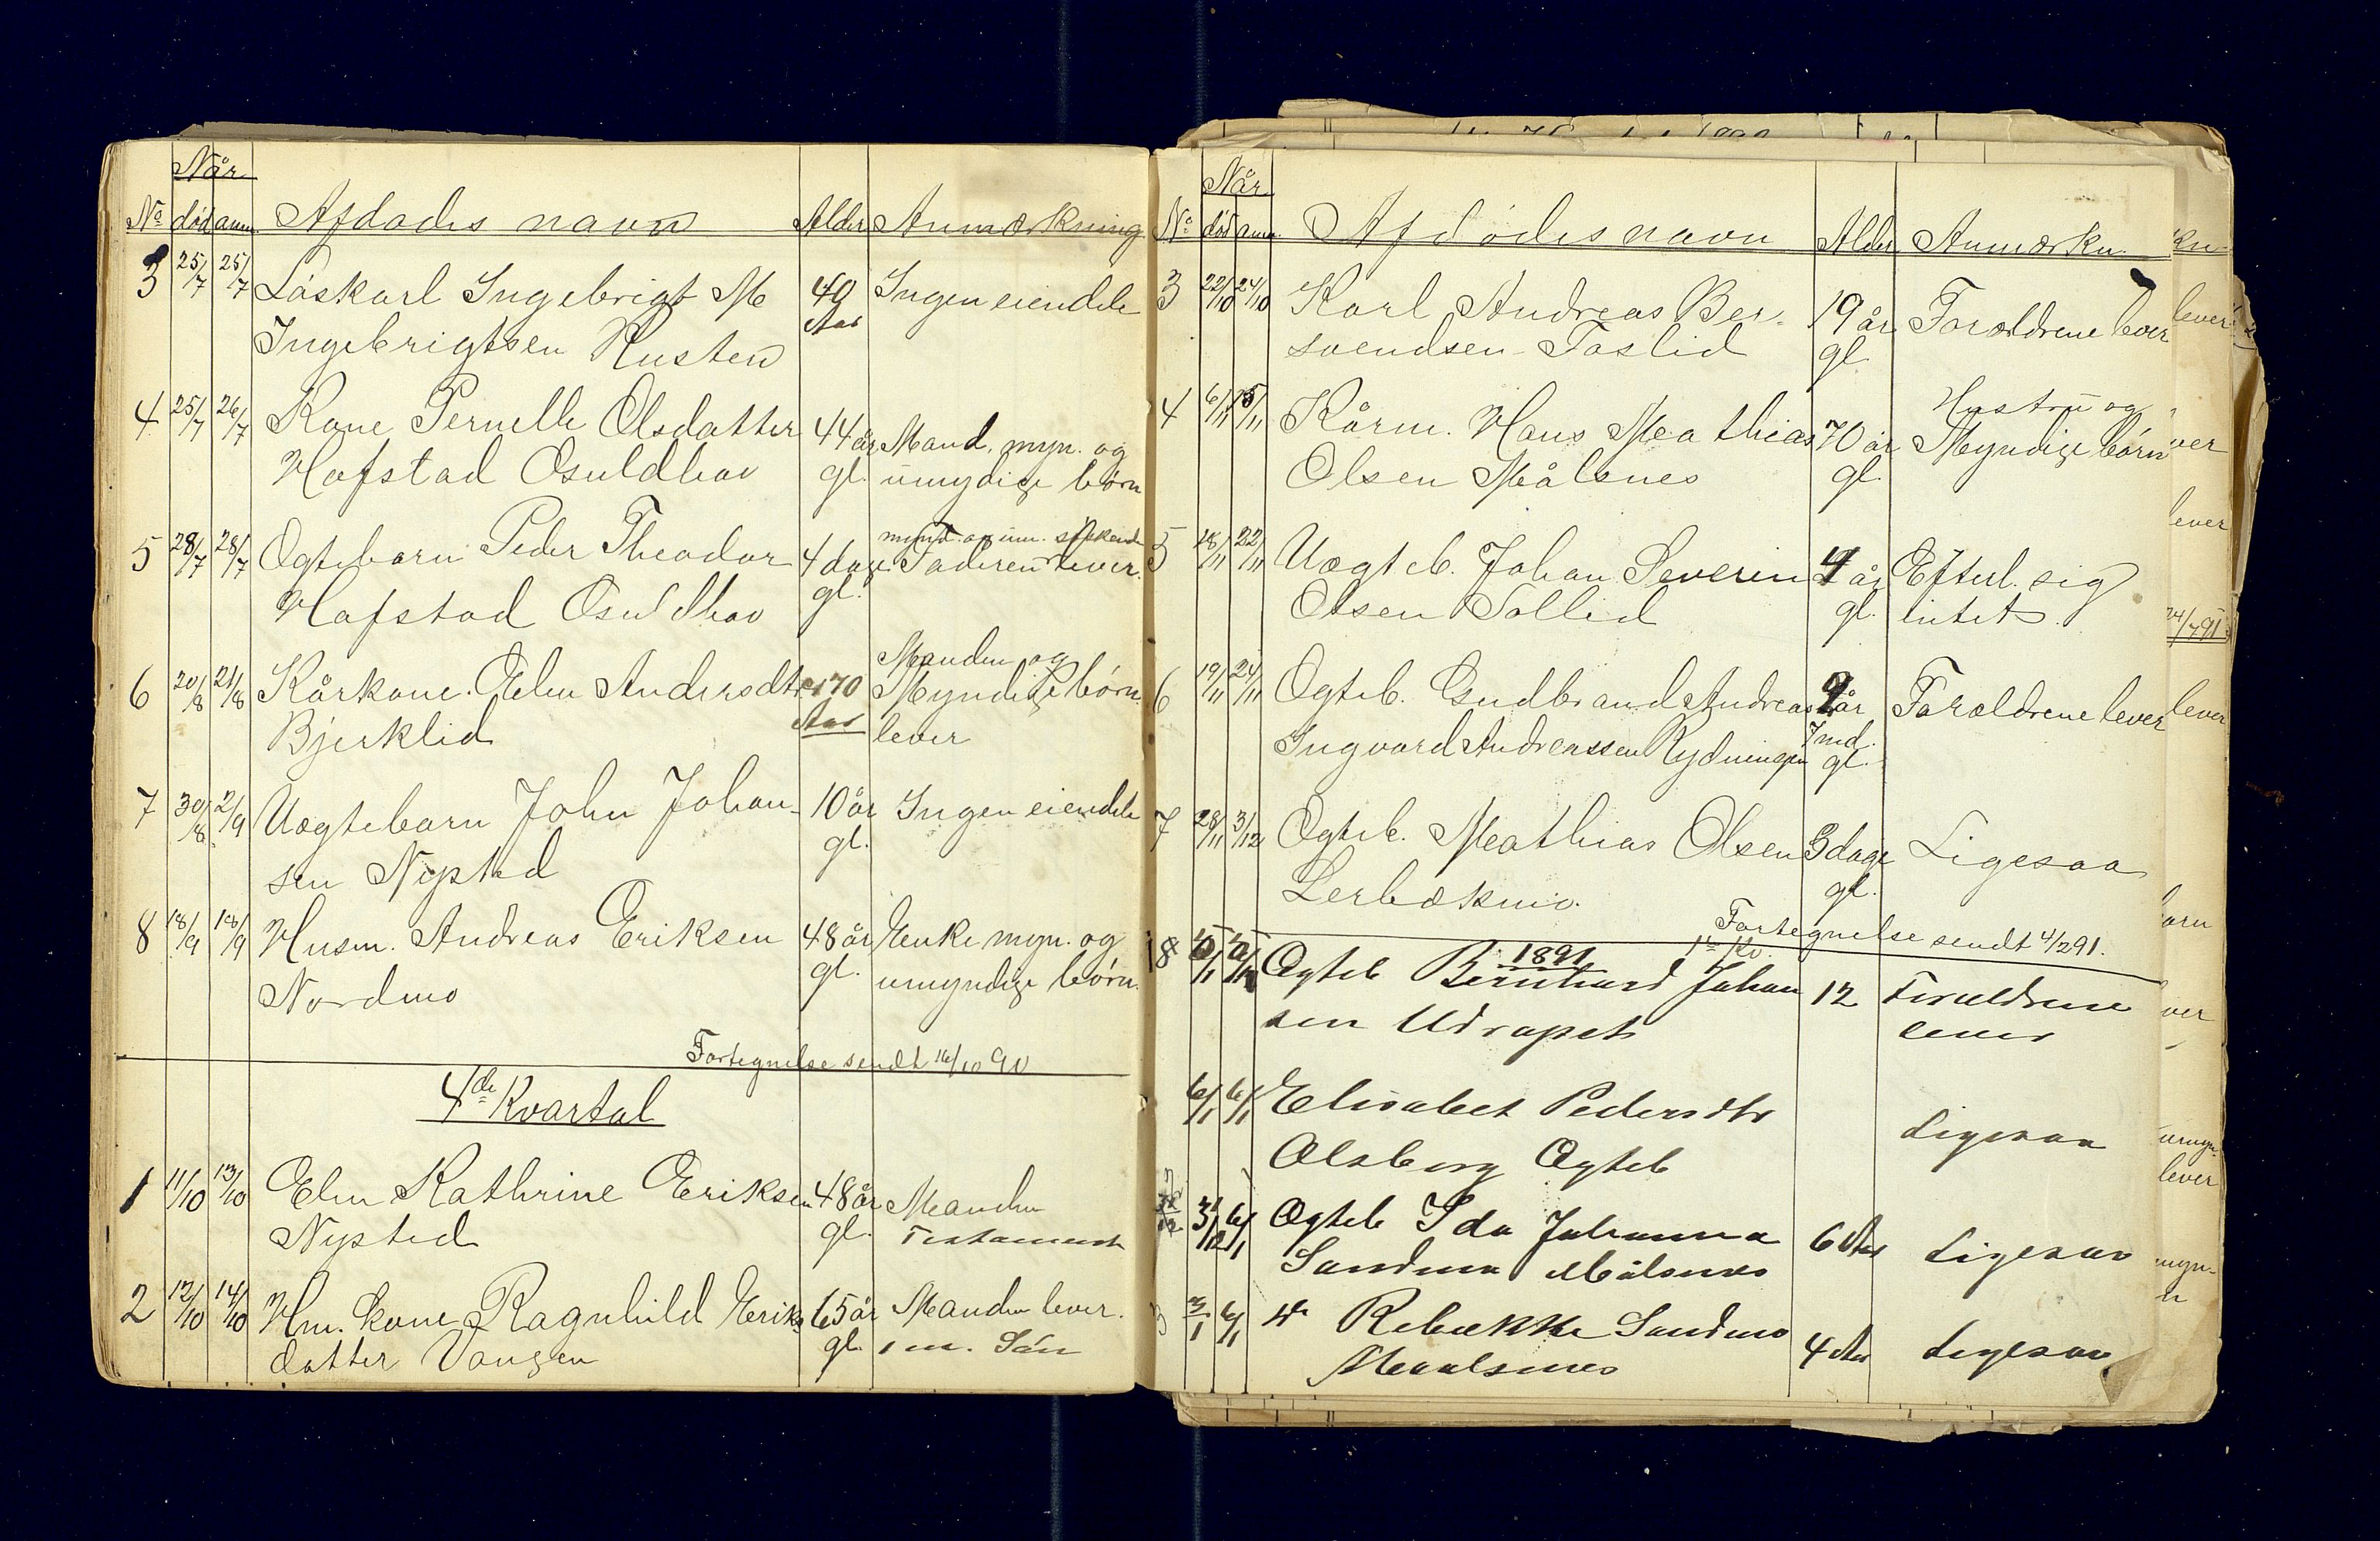 Når
No død anm. Afdødes navn Alder Anmærkning
3 25/7 25/7 Løskarl Ingebrigt M 40 Ingen eiendele
Ingebrigtsen Rusten Aar
4 25/7 26/7 Kone Pernelle Olsdatter 44 år Mand, myn. og
Hofstad Osuldhav gl. umydige børn
mynd. og um. søskende
5 28/7 28/7 Ægtebarn Peder Theodor 4 dage Faderen lever.
Hofstad Osuldhav gl.
Manden og
6 20/8 21/8 Kårkone. Elen Andersdtr 70 Myndige børn
Bjerklid Aar lever
7 30/8 2/9 Uægtebarn John Johan- 10 år Ingen eiendele
sen Nysted gl.
8 18/9 18/9 Husm. Andreas Eriksen 48 år Enke myn. og
Nordmo gl. umyndige børn.
Fortegnelse sendt 16/10 90
4de Kvartal
1 11/10 13/10 Elen Kathrine Eriksen 48 år Manden
Nysted gl. Testament
2 12/10 14/10 Hm. kone Ragnhild Eriks 65 år Manden lever.
datter Vangen gl. 1 m. Søn
Når
No død anm. Afdødes navn Alder Anmærkn.
3 22/10 24/10 Karl Andreas Ber- 19 år Forældrene lever
svendsen Foslid gl.
Hustru og
4 6/11 15/11 Kårm. Hans Mathias 70 år Myndige børn
Olsen Målsnes gl.
5 18/11 22/11 Uægteb. Johan Severin 4 år Efterl. sig
Olsen Sollid gl. intet.
6 19/11 24/11 Ægteb. Gudbrand Andreas 9 år Forældrene lever
Ingvard Andreassen Rydningen 7 md. gl.
7 28/11 3/12 Ægteb. Mathias Olsen 3 dage Ligesaa
Lerbækmo. gl.
Fortegnelse sendt 4/2 91.
1891 1ste Kv.
Ægteb Bernhard Johan 12 Forældrene
sen Udrapet lever
6/1 6/1 Elisabet Pedersdtr
Olsborg Ægteb Ligesaa
31/12 6/1 Ægteb Ida Johanna 6 Aar Ligesaa
Sandmo Målsnes
3 3/1 6/1 do Rebekka Sandmo 4 Aar Ligesaa
Maalsnes
kn.
lever
ver
lever
24/7 91
lever
ørn
ver
umyn.
lever
myn-